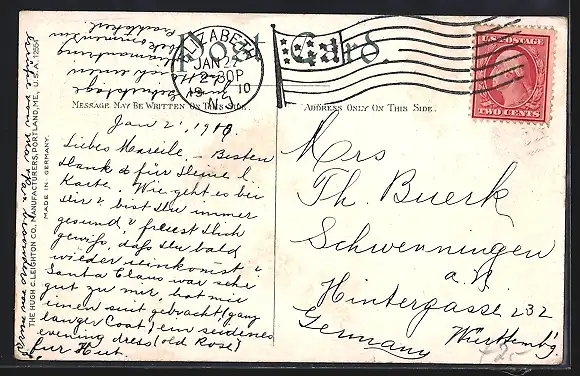 Post Card.
ELIZABETH
JAN 22
2-30P
19 10
N.J.
U.S. POSTAGE
TWO CENTS
MESSAGE MAY BE WRITTEN ON THIS SIDE.
ADDRESS ONLY ON THIS SIDE.
THE HUGH C. LEIGHTON CO., MANUFACTURERS, PORTLAND, ME., U.S.A. 12556
MADE IN GERMANY.
Jan 2', 1910.
Liebes Mareile. – Besten
Dank für Deine l.
Karte. Wie geht es bei
Dir & bist Du immer
gesund & freust Dich
gewiß, daß Du bald
wieder heimkomst &
Santa Claus war sehr
gut zu mir, hat mir
einen suit gebracht (ganz
langer Coat) ein seidenes
evening dress (old Rose)
für Hut.
Mrs
Th. Buerk
Schwenningen
a. N.
Hintergasse 232
Württembg.
Germany